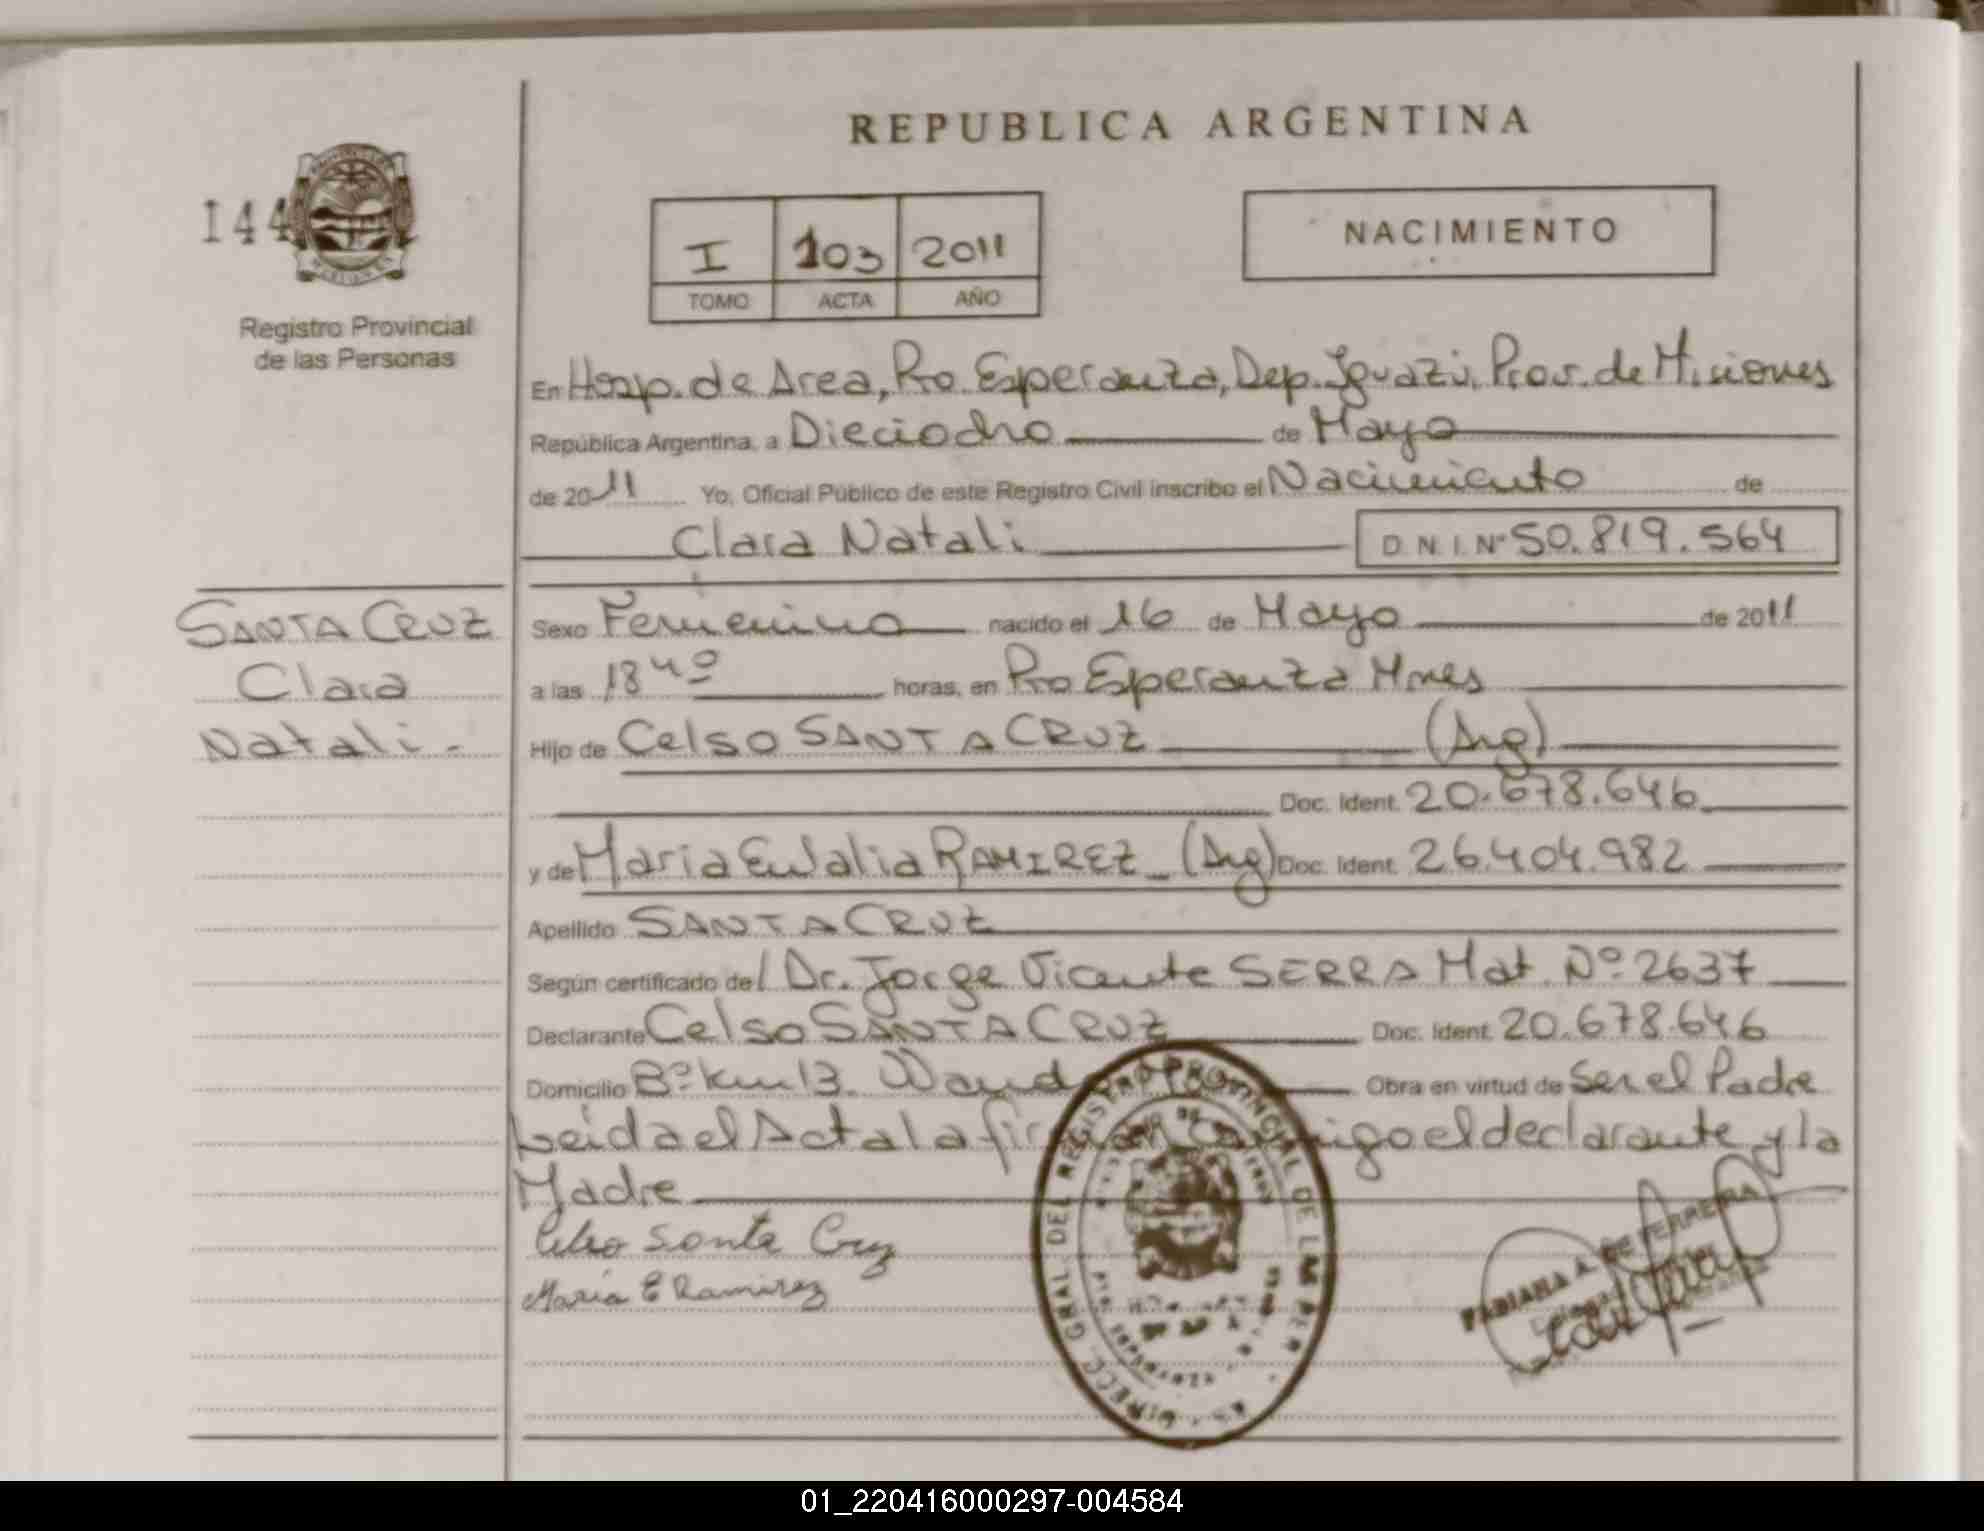 REPUBLICA ARGENTINA
144
Registro Provincial
de las Personas
I 103 2011
TOMO ACTA AÑO
NACIMIENTO
En Hosp. de Area, Pto. Esperanza, Dep. Iguazú, Prov. de Misiones
República Argentina, a Dieciocho de Mayo
de 2011 Yo, Oficial Público de este Registro Civil inscribo el Nacimiento de
Clara Natali D.N.I. Nº 50.819.564
SANTA CRUZ
Clara
Natali.-
Sexo Femenino nacido el 16 de Mayo de 2011
a las 18 40 horas, en Pto Esperanza Mnes
Hijo de Celso SANTA CRUZ (Arg)
Doc. Ident. 20.678.646
y de Maria Eulalia RAMIREZ (Arg) Doc. Ident. 26.404.982
Apellido SANTA CRUZ
Según certificado de l Dr. Jorge Vicente SERRA Mat. Nº 2637
Declarante Celso SANTA CRUZ Doc. Ident. 20.678.646
Domicilio Bº km 13. Obra en virtud de Ser el Padre
Leida el Acta la el declarante y la
Madre
Celso Santa Cruz
Maria E Ramirez
DIRECC. GRAL. DEL REGISTRO PROVINCIAL DE LAS PER
FABIANA A. DE FERREIRA
01_220416000297-004584